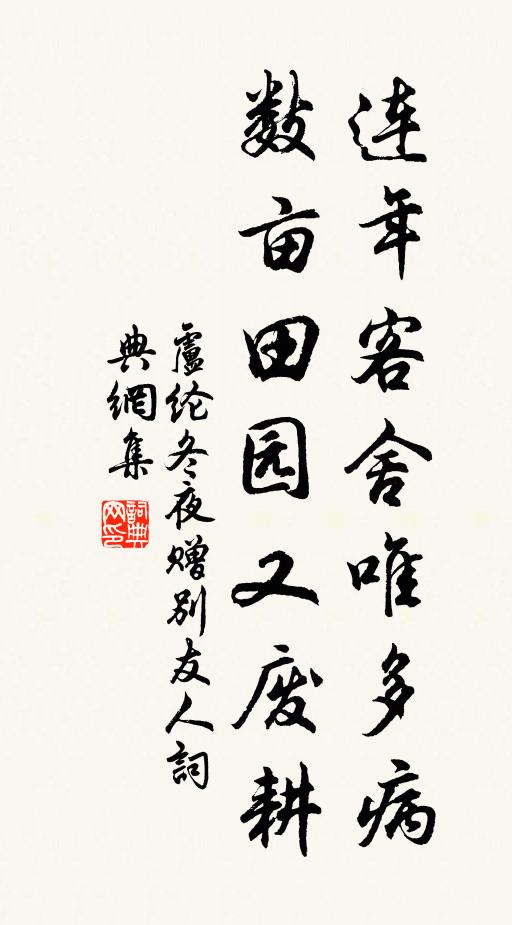 连年客舍唯多病
数亩田园又废耕
盧纶冬夜赠别友人詞
典網集
詞典网印